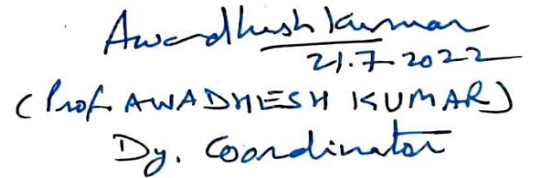 Awadhesh Kumar
21.7.2022
(Prof. AWADHESH KUMAR)
Dy. Coordinator